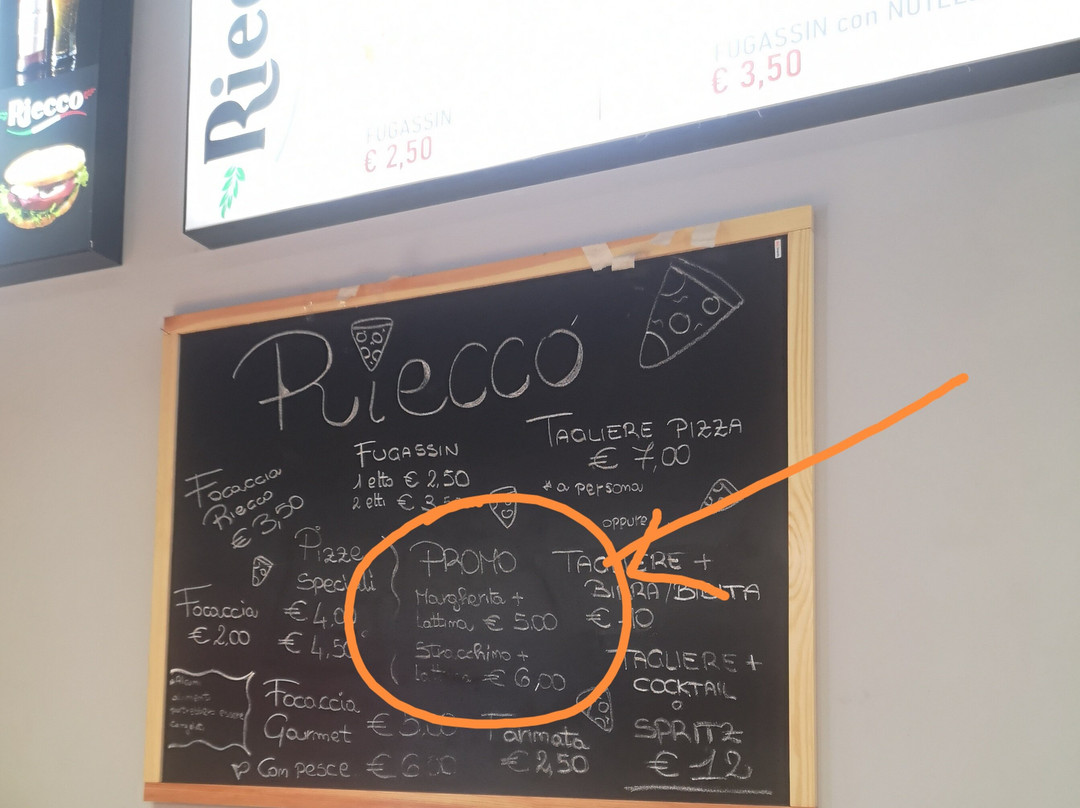 Riecco
Riecc
FUGASSIN
€ 2,50
FUGASSIN con NUTEL
€ 3,50
Rieccò
Focaccia
Riecco
€ 3,50
FUGASSIN
1 etto € 2,50
2 etti € 3,50
TAGLIERE PIZZA
€ 7,00
* a persona
oppure
TAGLIERE +
BIRRA/BIBITA
€ 10
TAGLIERE +
COCKTAIL
o
SPRITZ
€ 12
Pizze
Speciali
€ 4,00
€ 4,50
PROMO
Margherita +
lattina € 5,00
Stracchino +
lattina € 6,00
Focaccia
€ 2,00
Focaccia
Gourmet € 5,00
Con pesce € 6,00
Farinata
€ 2,50